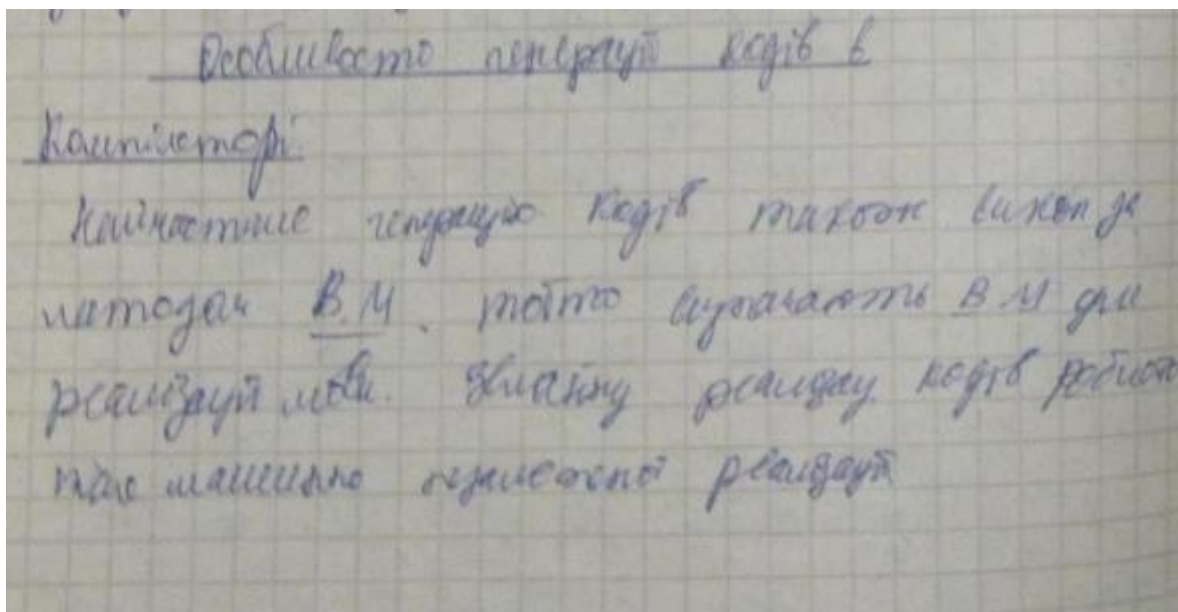 Особливосто генерації кодів в
Компіляторі.
Найчастіше генерацію кодів також викон за
методом В.М. тобто визначають В М для
реалізації мови. Звичайну реалізац кодів роблять
машинно незалежної реалізації